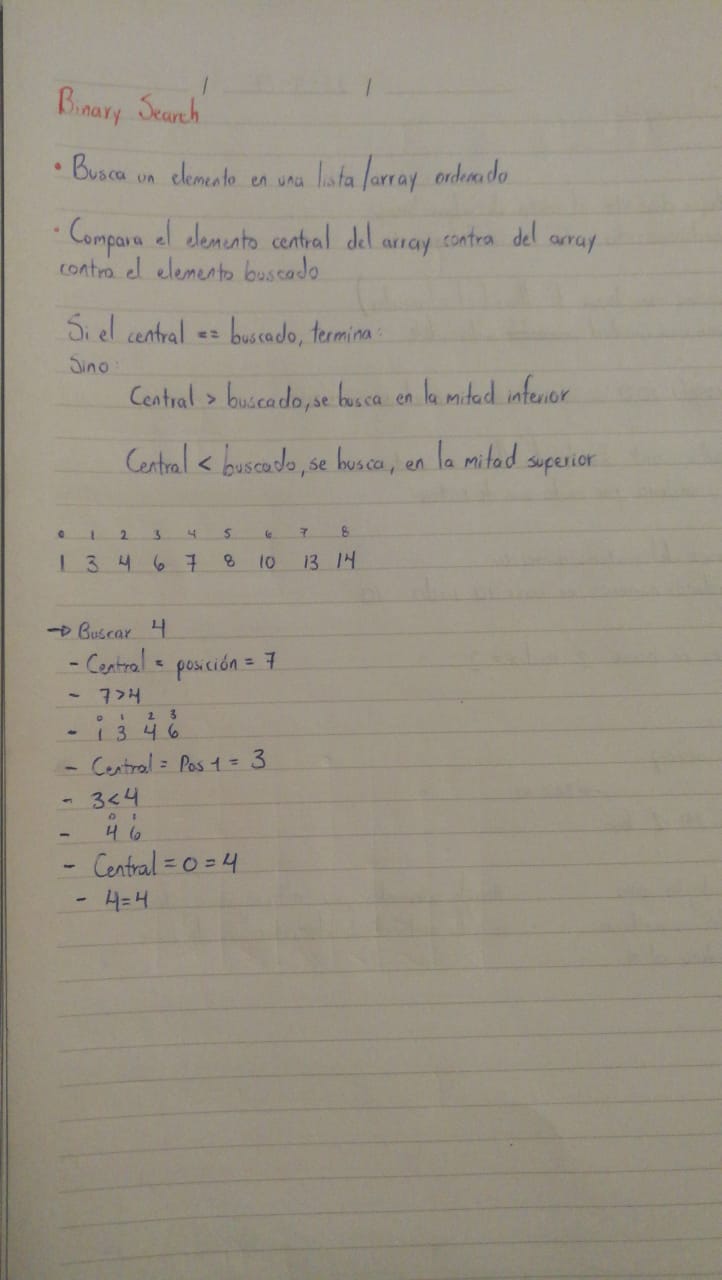 Binary Search
• Busca un elemento en una lista/array ordenado
• Compara el elemento central del array contra del array
contra el elemento buscado
Si el central == buscado, termina:
Sino:
Central > buscado, se busca en la mitad inferior
Central < buscado, se busca, en la mitad superior
0 1 2 3 4 5 6 7 8
1 3 4 6 7 8 10 13 14
→ Buscar 4
- Central = posición = 7
- 7>4
0 1 2 3
- 1 3 4 6
- Central = Pos 1 = 3
- 3<4
0 1
- 4 6
- Central = 0 = 4
- 4=4